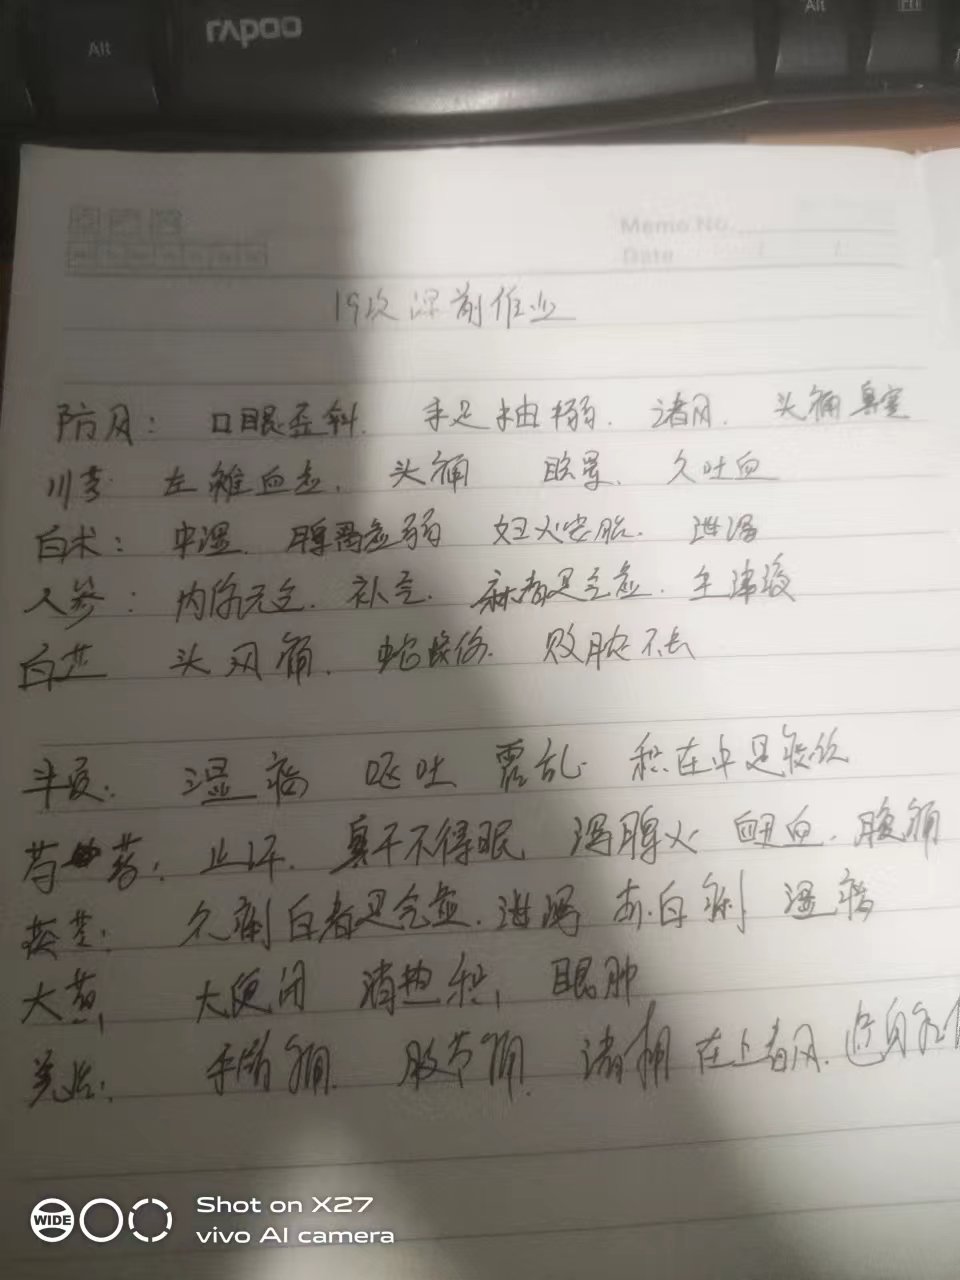 Alt
rapoo
Alt
Memo No.
Date
19次课前作业
防风： 口眼歪斜. 手足抽搦. 诸风. 头痛鼻塞
川芎 左瘫血虚. 头痛 眩晕. 久吐血
白术： 中湿. 脾胃虚弱 妇人安胎. 泄泻
人参： 内伤元气. 补气. 麻者是气虚. 生津液
白芷 头风痛. 蛇咬伤. 败脓不去
半夏： 湿痰 呕吐 霍乱 积在中是痰饮
芍药： 止汗. 鼻干不得眠 泻脾火 衄血. 腹痛
茯苓： 久痢白者是气虚. 泄泻 赤白痢 湿痰
大黄 大便闭 消热积 眼肿
羌活： 手臂痛. 肢节痛. 诸痛在上者风. 遍身
WIDE
Shot on X27
vivo AI camera